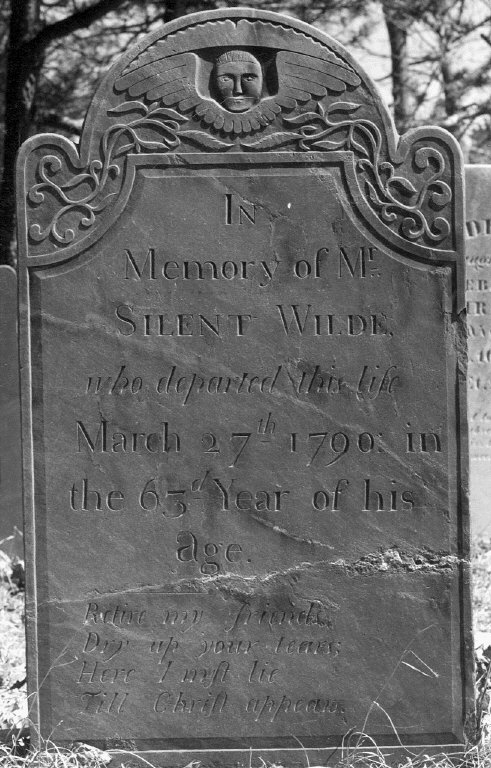 In
Memory of Mr.
SILENT WILDE,
who departed this life
March 27th 1790: in
the 63d Year of his
age.
Retire my friends,
Dry up your tears;
Here I mſt lie
Till Chriſt appears.